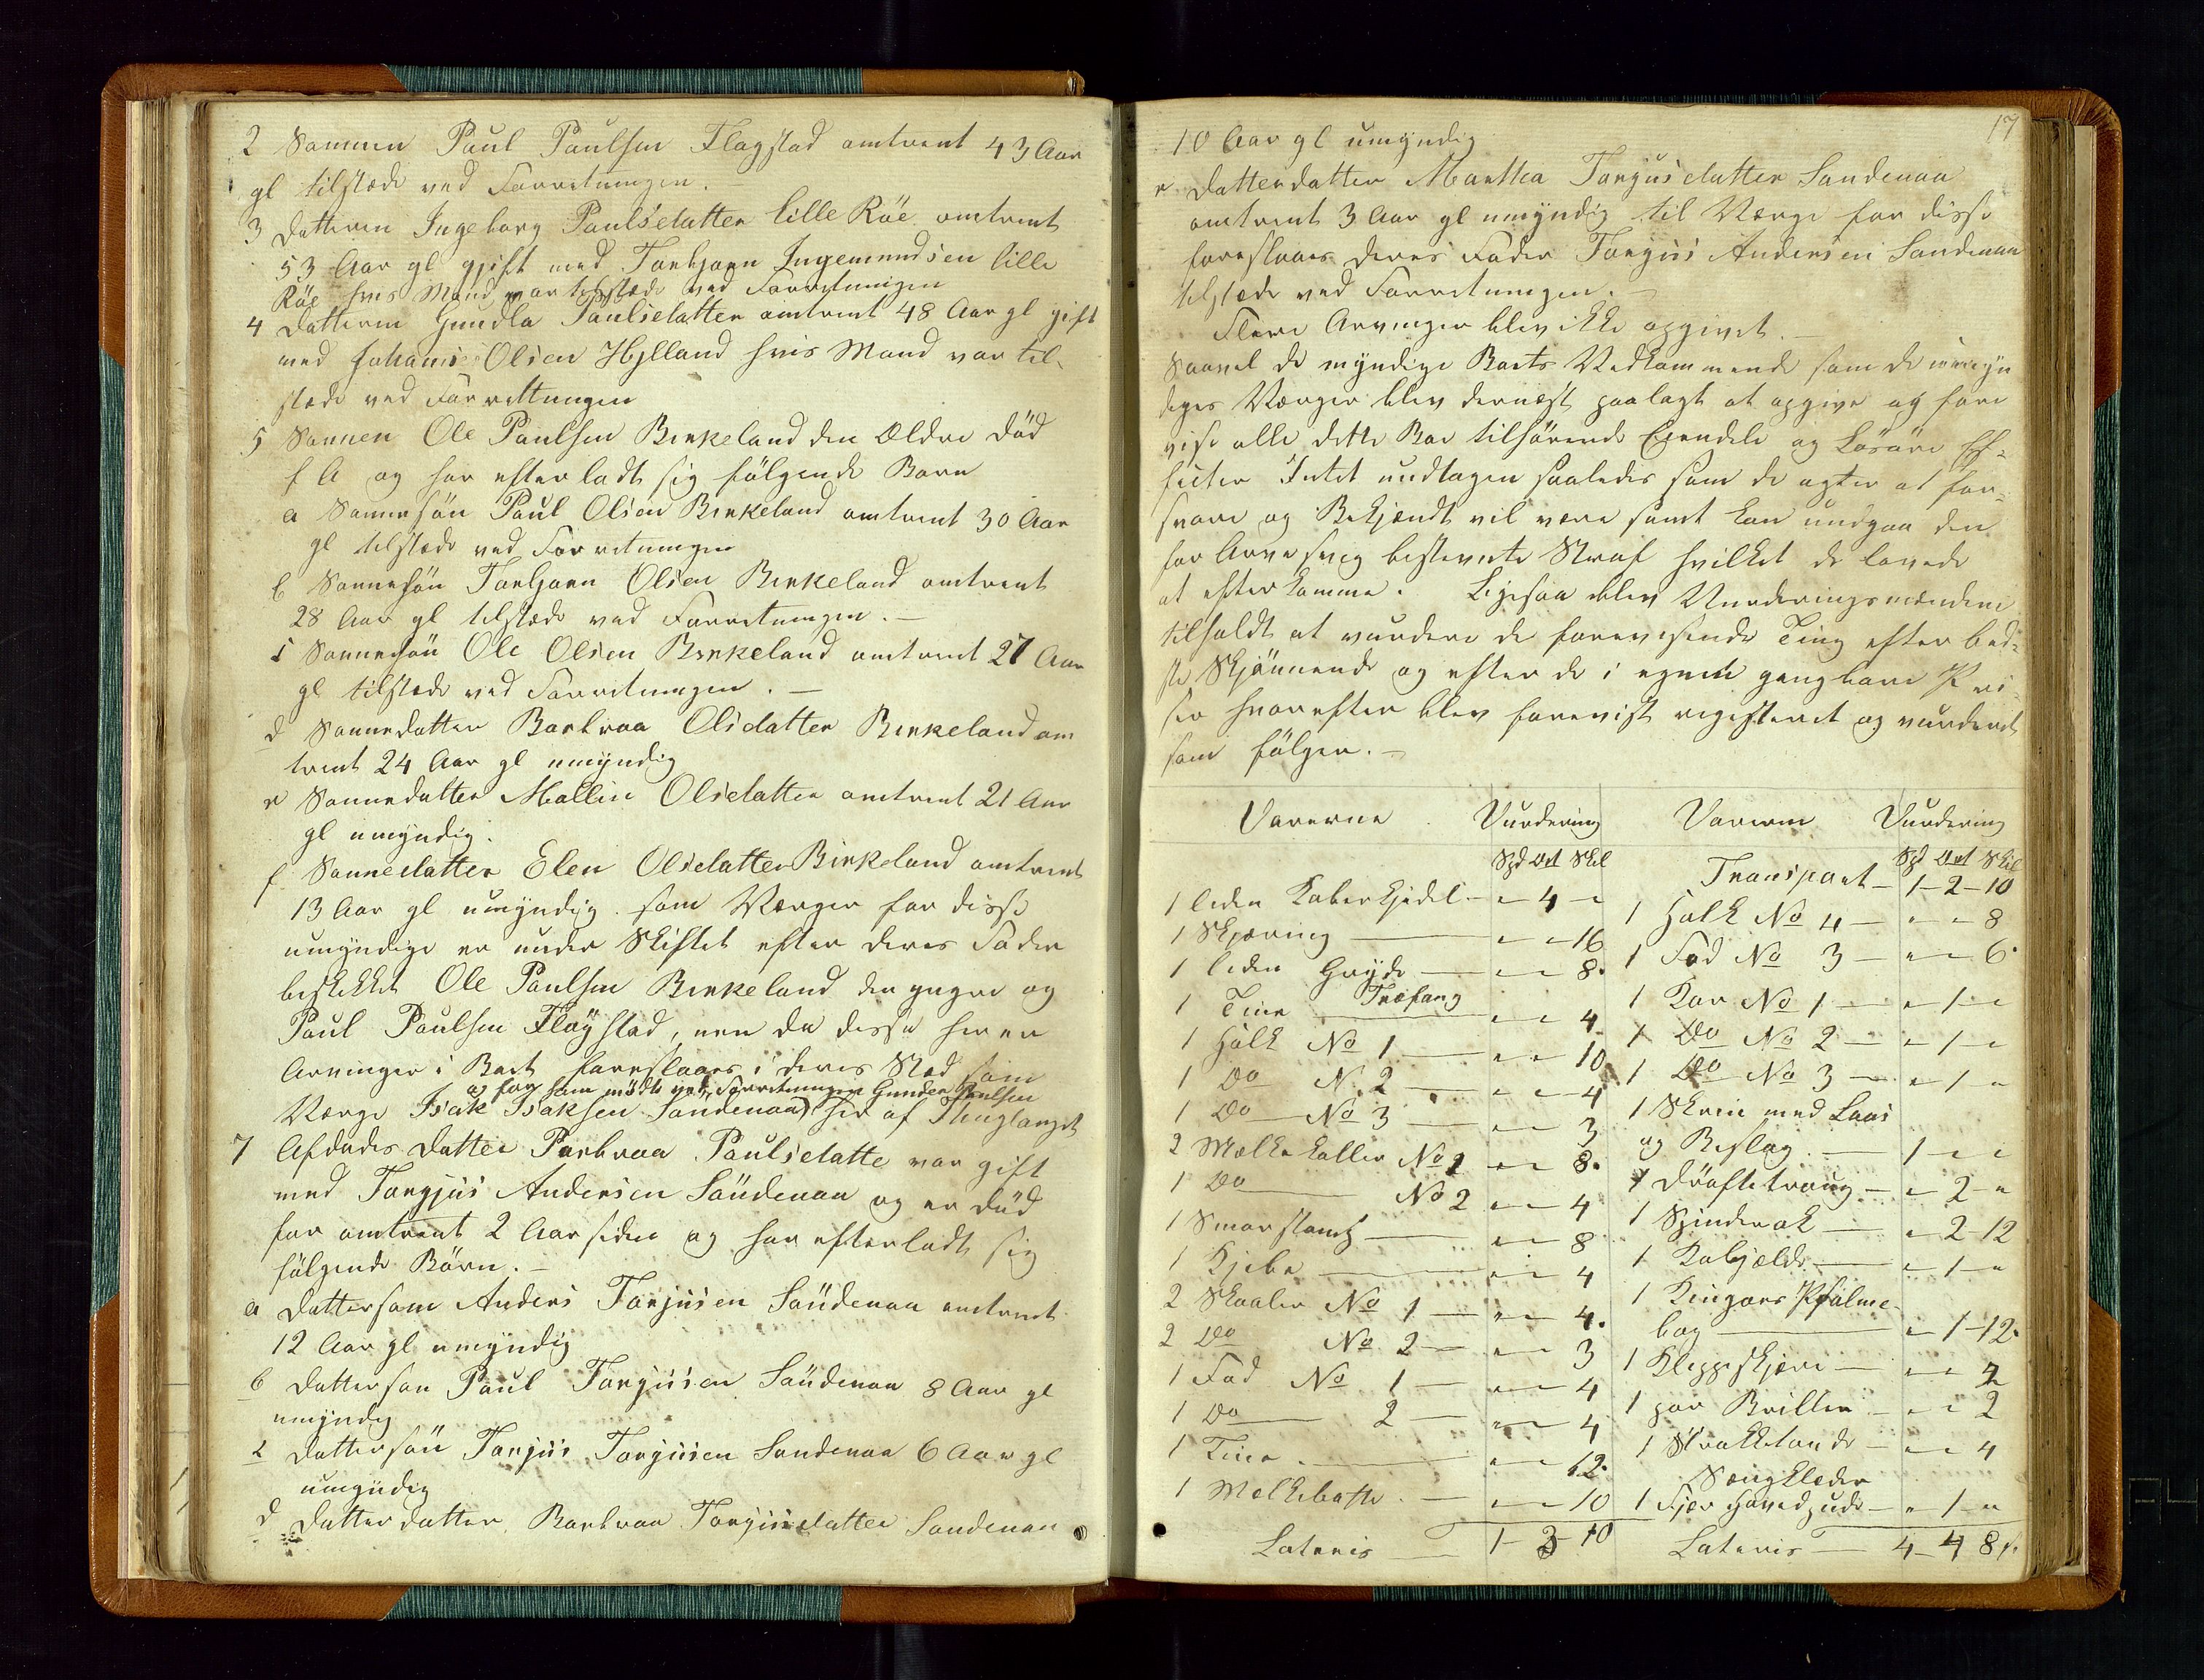 2 Sønnen Paul Paulsen Fløgstad omtrent 43 Aar
gl tilstæde ved Forretningen.
3 Datteren Ingeborg Paulsdatter lille Röe omtrent
53 Aar gl gift med Torbjørn Ingemundsen lille
Röe hvis Mand var tilstæde ved Forretningen
4 Datteren Gundla Paulsdatter omtrent 48 Aar gl gift
med Johanis Olsen Hylland hvis Mand var til-
stæde ved Forrettningen
5 Sønnen Ole Paulsen Birkeland den Ældre Död
f A og har efterladt sig fölgende Børn
a Sønnesön Paul Olsen Birkeland omtrent 30 Aar
gl tilstæde ved Forretningen
b Sønnesön Torbjørn Olsen Birkeland omtrent
28 Aar gl tilstæde ved Forretningen.
c Sønnesön Ole Olsen Birkeland omtrent 27 Aar
gl tilstæde ved Forretningen.
d Sønnedatter Barbraa Olsdatter Birkeland om
trent 24 Aar gl umyndig
e Sønnedatter Mallin Olsdatter omtrent 21 Aar
gl umyndig.
f Sønnedatter Elen Olsdatter Birkeland omtrent
13 Aar gl umyndig. som Værger for disse
umyndige er under Skiftet efter deres Fader
beskikket Ole Paulsen Birkeland den yngre og
Paul Paulsen Fløgstad, men da disse her er
Arvinger i Boet foreslaaes i deres Sted som
og for ham mödte ved Forretningen Gunder Paulsen
Værge Isak Isaksen Søndenaa her af Thinglauget
7 Afdødes Datter Barbraa Paulsdatte var gift
med Torgjus Andersen Söndenaa og er Död
for omtrent 2 Aar siden og har efterladt sig
fölgende Börn.
a Dattersøn Anders Torjusen Söndenaa omtrent
12 Aar gl umyndig
b Dattersøn Paul Torgjusen Söndenaa 8 Aar gl
umyndig
c Dattersön Torjus Torgjusen Søndenaa 6 Aar gl
umyndig
d Datterdatter Barbraa Torgjusdatter Søndenaa
17
10 Aar gl umyndig
e Datterdatter Marttha Torgjusdatter Søndenaa
omtrent 3 Aar gl umyndig til Værge for disse
foreslaaes deres Fader Torgjus Andersen Søndenaa
tilstæde ved Forretningen.
Flere Arvinger blev ikke opgivet.
Saavel de myndige Boets Vedkommende som de umyn
diges Værger blev dernæst paalagt at opgive og fore
vise alle dette Boe tilhörende Eiendele og Lösöre Ef-
fecter Intet undtagen saaledes som de agter at for-
svare og Bekjendt vil være samt kan undgaa den
for Arvesvig bestemte Straf hvilket de lovede
at efterkomme. Ligesaa blev Vurderingsmændene
tilholdt at vurdere de forevisende Ting efter bed-
ste Skjönnende og efter de i egnen gangbare Pri-
ser hvorefter blev forevist registeret og vurderet
som fölger.
Varerne Vurdering Varerne Vurdering
Spd Ort Skil Spd Ort Skil
Transport 1-2-10
1 liden Kaberkjedel " 4 "
1 Holk No 4 " " 8
1 Skjæring " " 16
1 Fad No 3 " " 6.
1 liden Gryde " " 8.
Træfang
1 Kar No 1 " 1 "
1 Tine " " 4
1 Do No 2 " 1 "
1 Holk No 1 " " 10
1 Do No 3 " 1 "
1 Do N. 2 " " 4
1 Skrin med Laas
1 Do No 3 " " 3
og Beslag. 1 " "
2 Mælkekoller No 1 " " 8.
1 Dröftetraug " 2 "
1 Do No 2 " " 4
1 Spinderok " 2-12
1 Smørstamp " " 8
1 Kobjælde " 1 "
1 Kjebe " " 4
1 Kingoes Psalme-
2 Skaaler No 1 " " 4.
bog " 1-12.
2 Do No 2 " " 3
1 Klippskjøre " " 4
1 Fad No 1 " " 4
1 par Briller " " 2
1 Do 2 " " 4
1 " " 4
1 Tine " " 12.
Sængklæder
1 Melkebøtte " " 10
1 Fjær Hovedpude " 1 "
Lateris 1 2 10 Lateris 4-4 8 s.